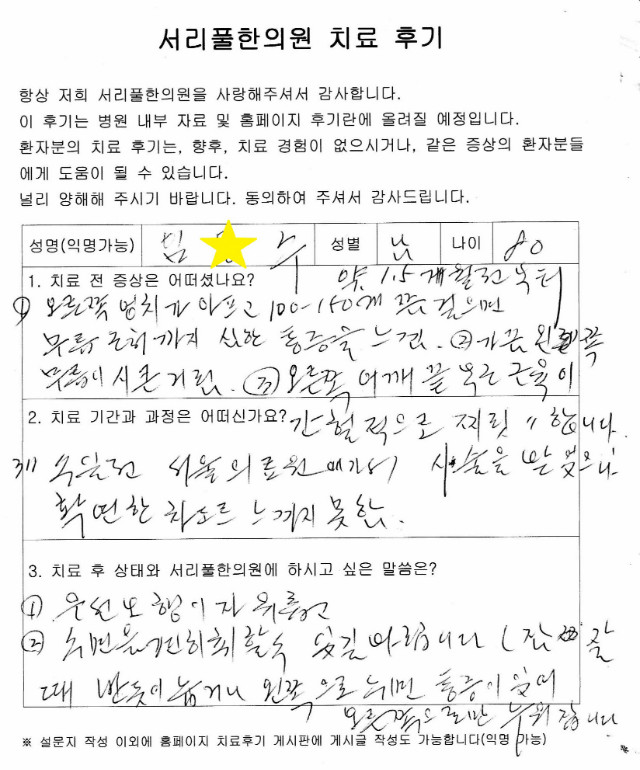 서리풀한의원 치료 후기
항상 저희 서리풀한의원을 사랑해주셔서 감사합니다.
이 후기는 병원 내부 자료 및 홈페이지 후기란에 올려질 예정입니다.
환자분의 치료 후기는, 향후, 치료 경험이 없으시거나, 같은 증상의 환자분들
에게 도움이 될 수 있습니다.
널리 양해해 주시기 바랍니다. 동의하여 주셔서 감사드립니다.
성명(익명가능) 임 수 성별 남 나이 80
1. 치료 전 증상은 어떠셨나요? 약 1.5개월전부터
① 오른쪽 엉치가 아프고 100-150개 쯤 걸으면
무릎 근처까지 심한 통증을 느낌. ② 가끔 왼쪽
무릎이 시큰거림. ③ 오른쪽 어깨 끝 부근 근육이
2. 치료 기간과 과정은 어떠신가요? 간헐적으로 찌릿 〃 합니다.
수일전 서울의료원에 가서 시술을 받았으나
확연한 차도를 느끼지 못함.
3. 치료 후 상태와 서리풀한의원에 하시고 싶은 말씀은?
① 우선 보행이 자유롭고
② 수면을 편히 취할 수 있길 바랍니다 (잠 잘
때 반듯이 눕거나 왼쪽으로 누우면 통증이 있어
오른쪽으로만 누워 잡니다
※ 설문지 작성 이외에 홈페이지 치료후기 게시판에 게시글 작성도 가능합니다(익명 가능)